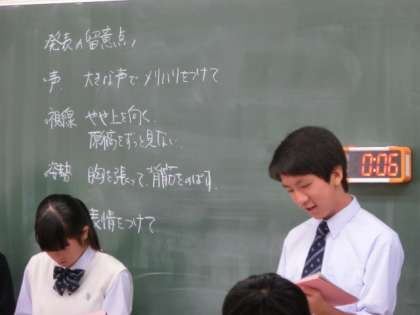 発表の留意点
声 大きな声でメリハリをつけて
視線 やや上を向く、
原稿をずっと見ない。
姿勢 胸を張って、背筋をのばす。
表情をつけて
0:06